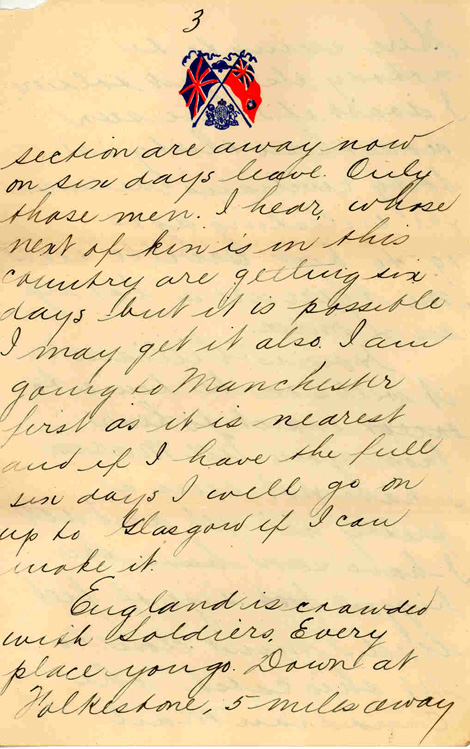 3
section are away now
on six days leave. Only
those men. I hear, whose
next of kin is in this
country are getting six
days but it is possible
I may get it also. I am
going to Manchester
first as it is nearest
and if I have the full
six days I will go on
up to Glasgow if I can
make it.
England is crowded
with Soldiers. Every
place you go. Down at
Folkestone, 5 miles away